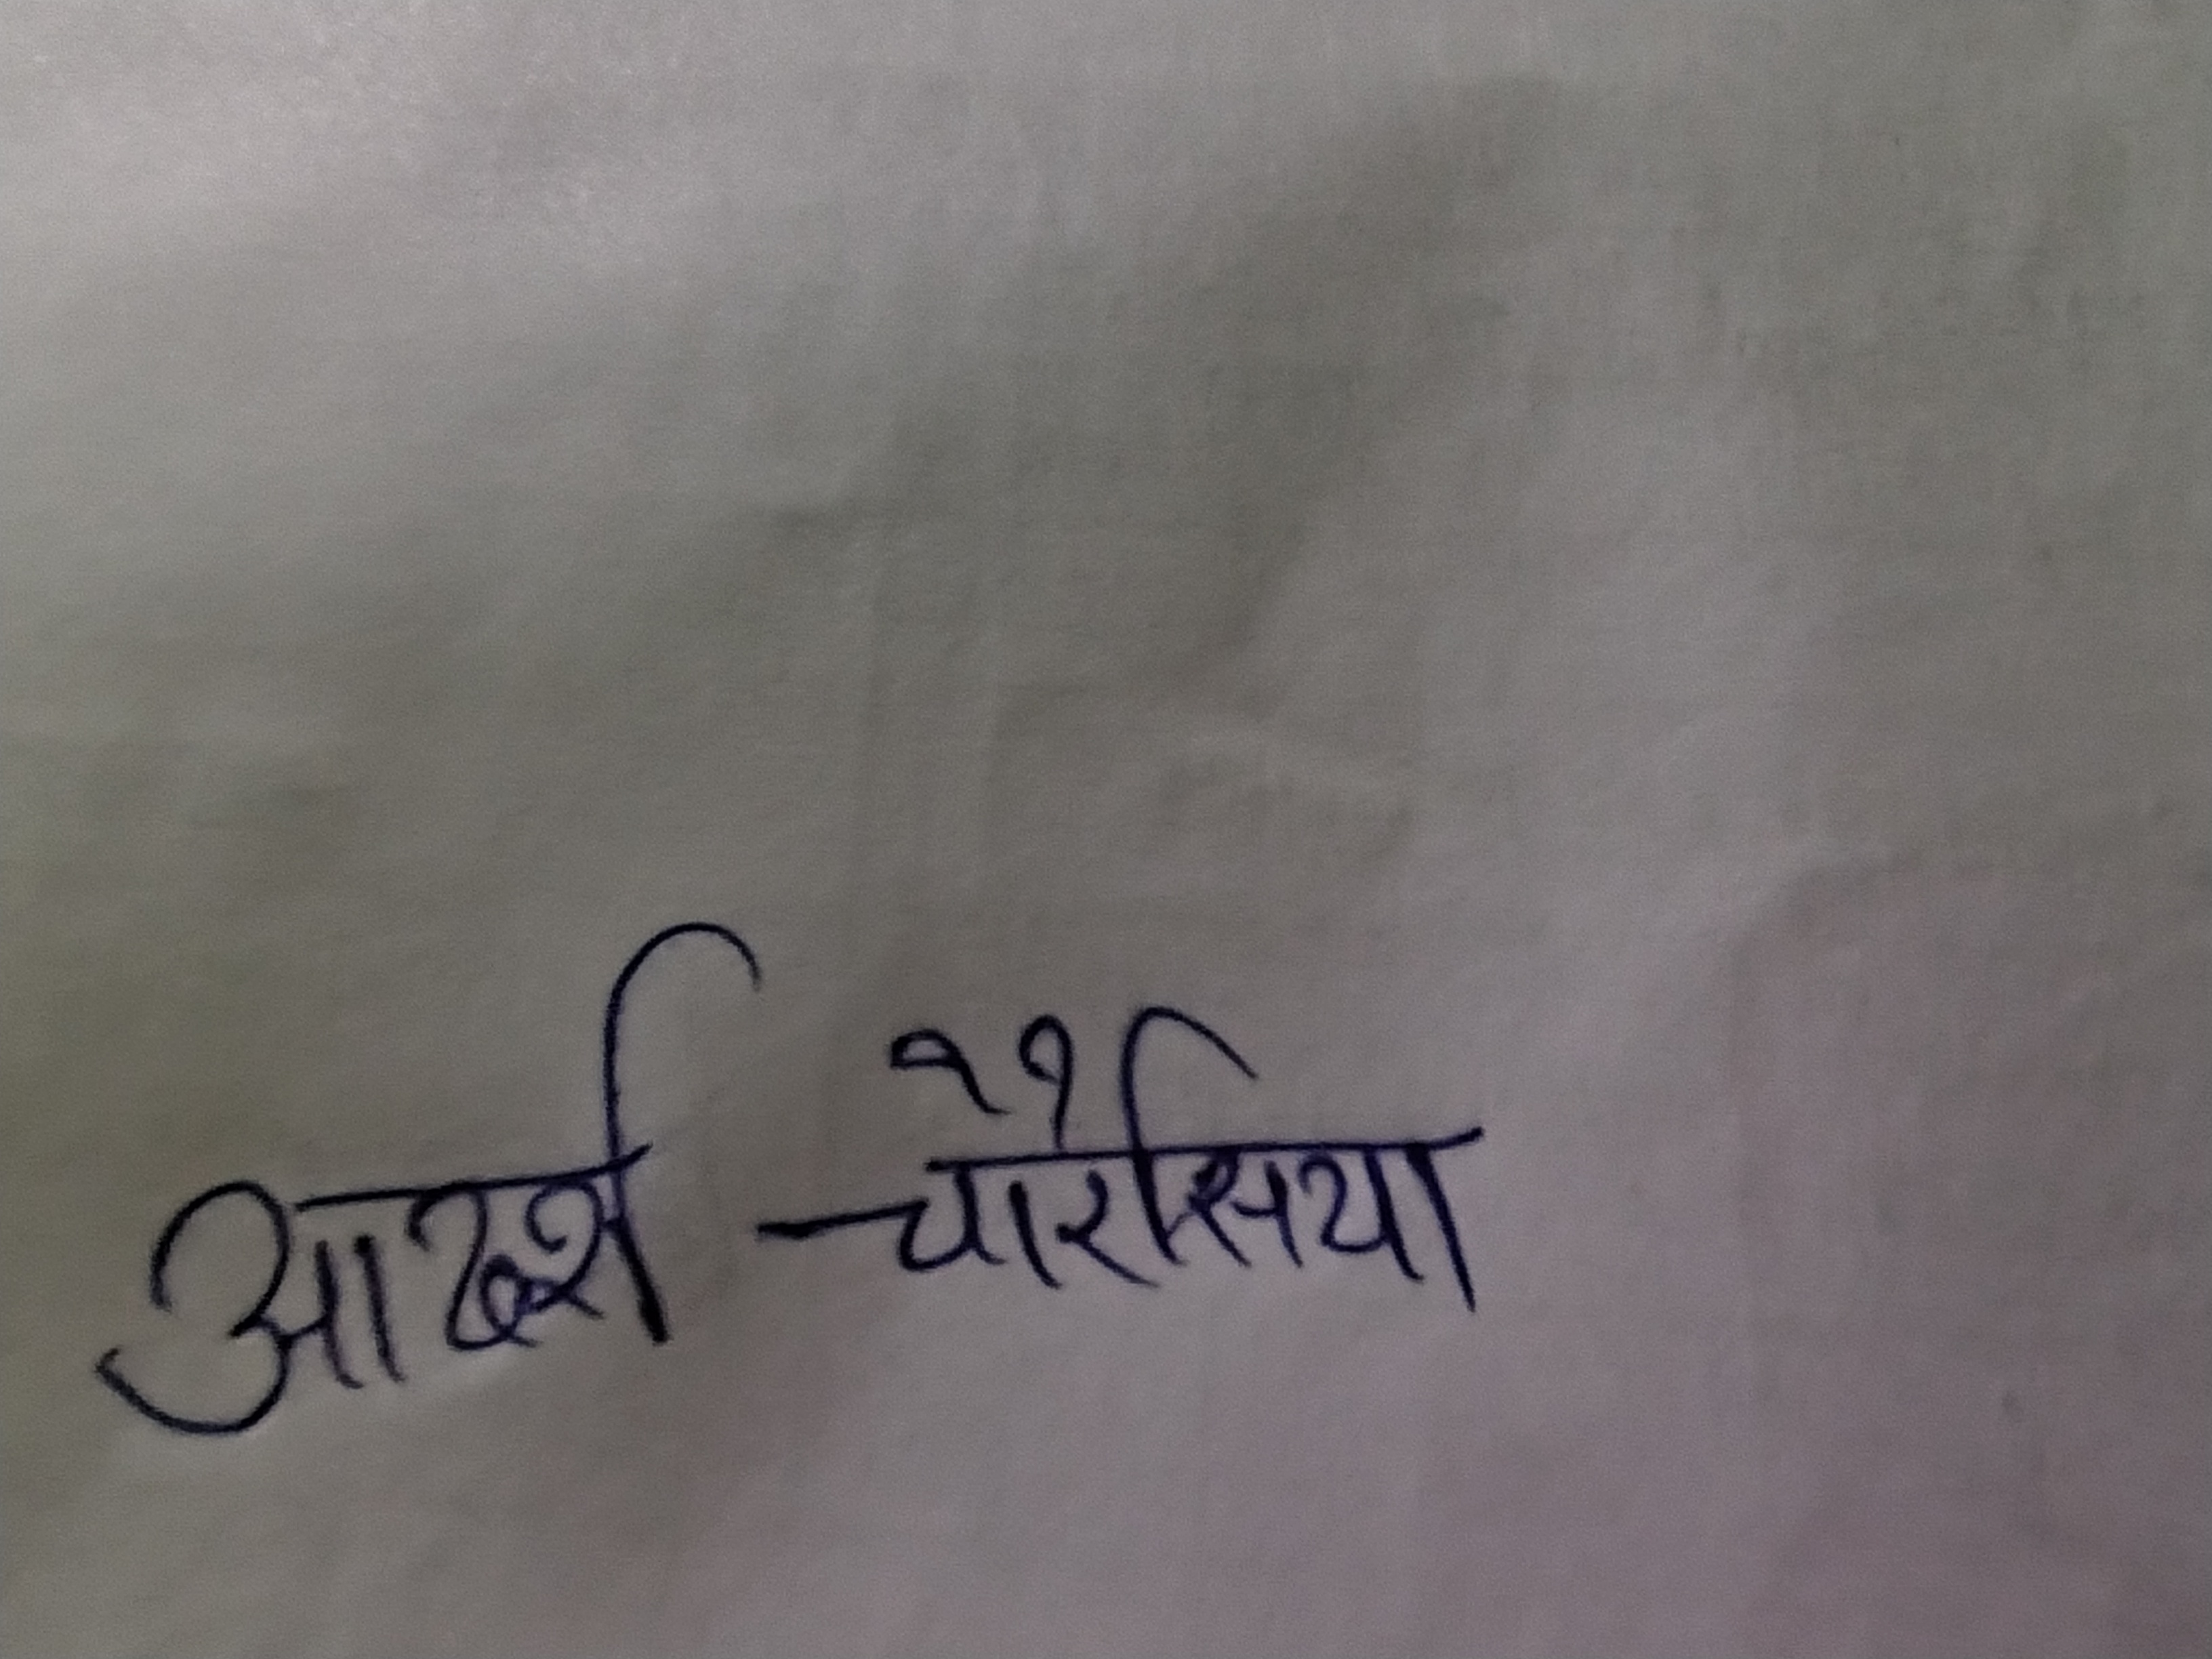 आदर्श चौरसिया